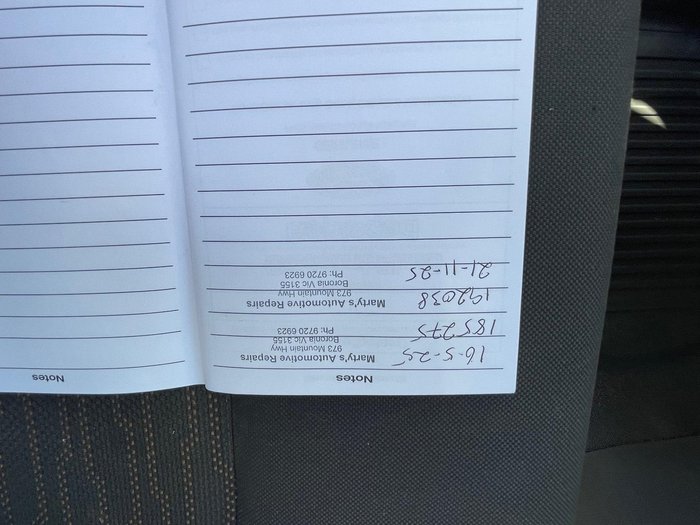 Notes
16-5-25 Marty's Automotive Repairs
973 Mountain Hwy
Boronia Vic 3155
185275 Ph: 9720 6923
192038 Marty's Automotive Repairs
973 Mountain Hwy
Boronia Vic 3155
21-11-25 Ph: 9720 6923
Notes